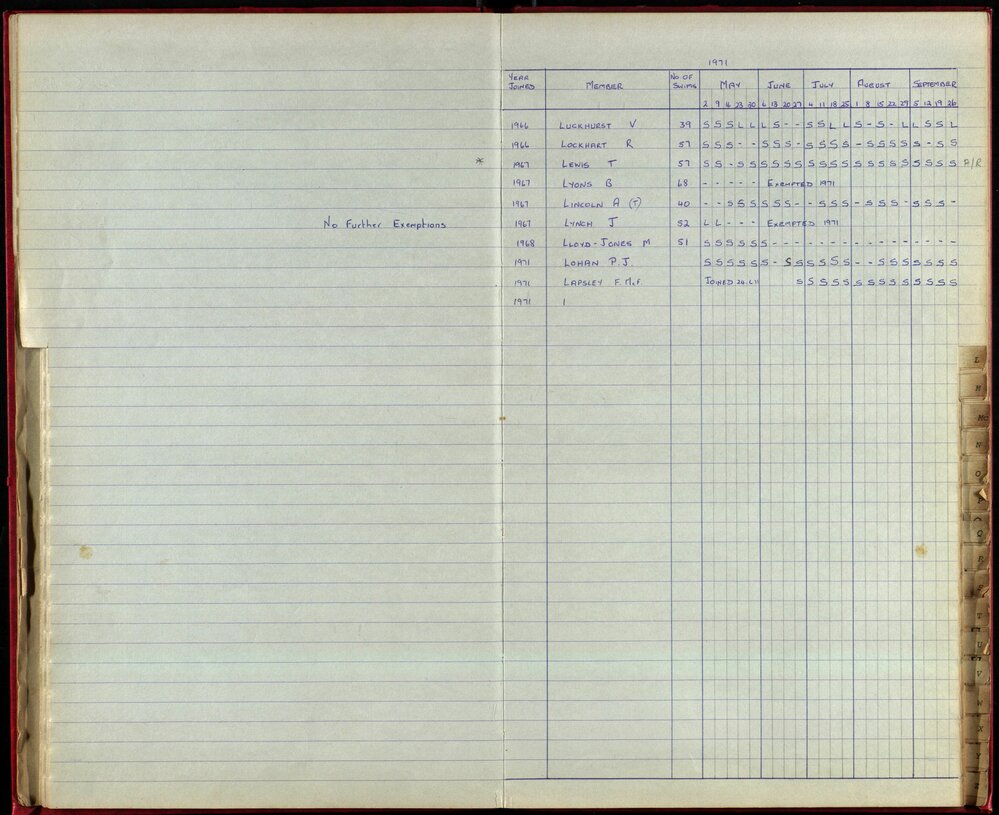 1971
YEAR JOINED MEMBER No OF SWIMS MAY JUNE JULY AUGUST SEPTEMBER
2 9 16 23 30 6 13 20 27 4 11 18 25 1 8 15 22 29 5 12 19 26
1966 LUCKHURST V 39 S S S L L L S - - S S L L S - S - L L S S L
1966 LOCKHART R 57 S S S - - S S S - S S S S - S S S S S - S S
* 1967 LEWIS T 57 S S - S S S S S S S S S S S S S S S S S S S P/R
1967 LYONS B 68 - - - - - EXEMPTED 1971
1967 LINCOLN A (T) 40 - - S S S S S S - - S S S - S S S - S S S -
No Further Exemptions 1967 LYNCH J 52 L L - - - EXEMPTED 1971
1968 LLOYD-JONES M 51 S S S S S S - - - - - - - - - - - - - - -
1971 LOHAN P.J. S S S S S S - S S S S S S - - S S S S S S S
1971 LAPSLEY F. McF. JOINED S S S S S S S S S S S S S S
1971
L
M
Mc
N
O
Q
R
T
U
V
W
X
Y